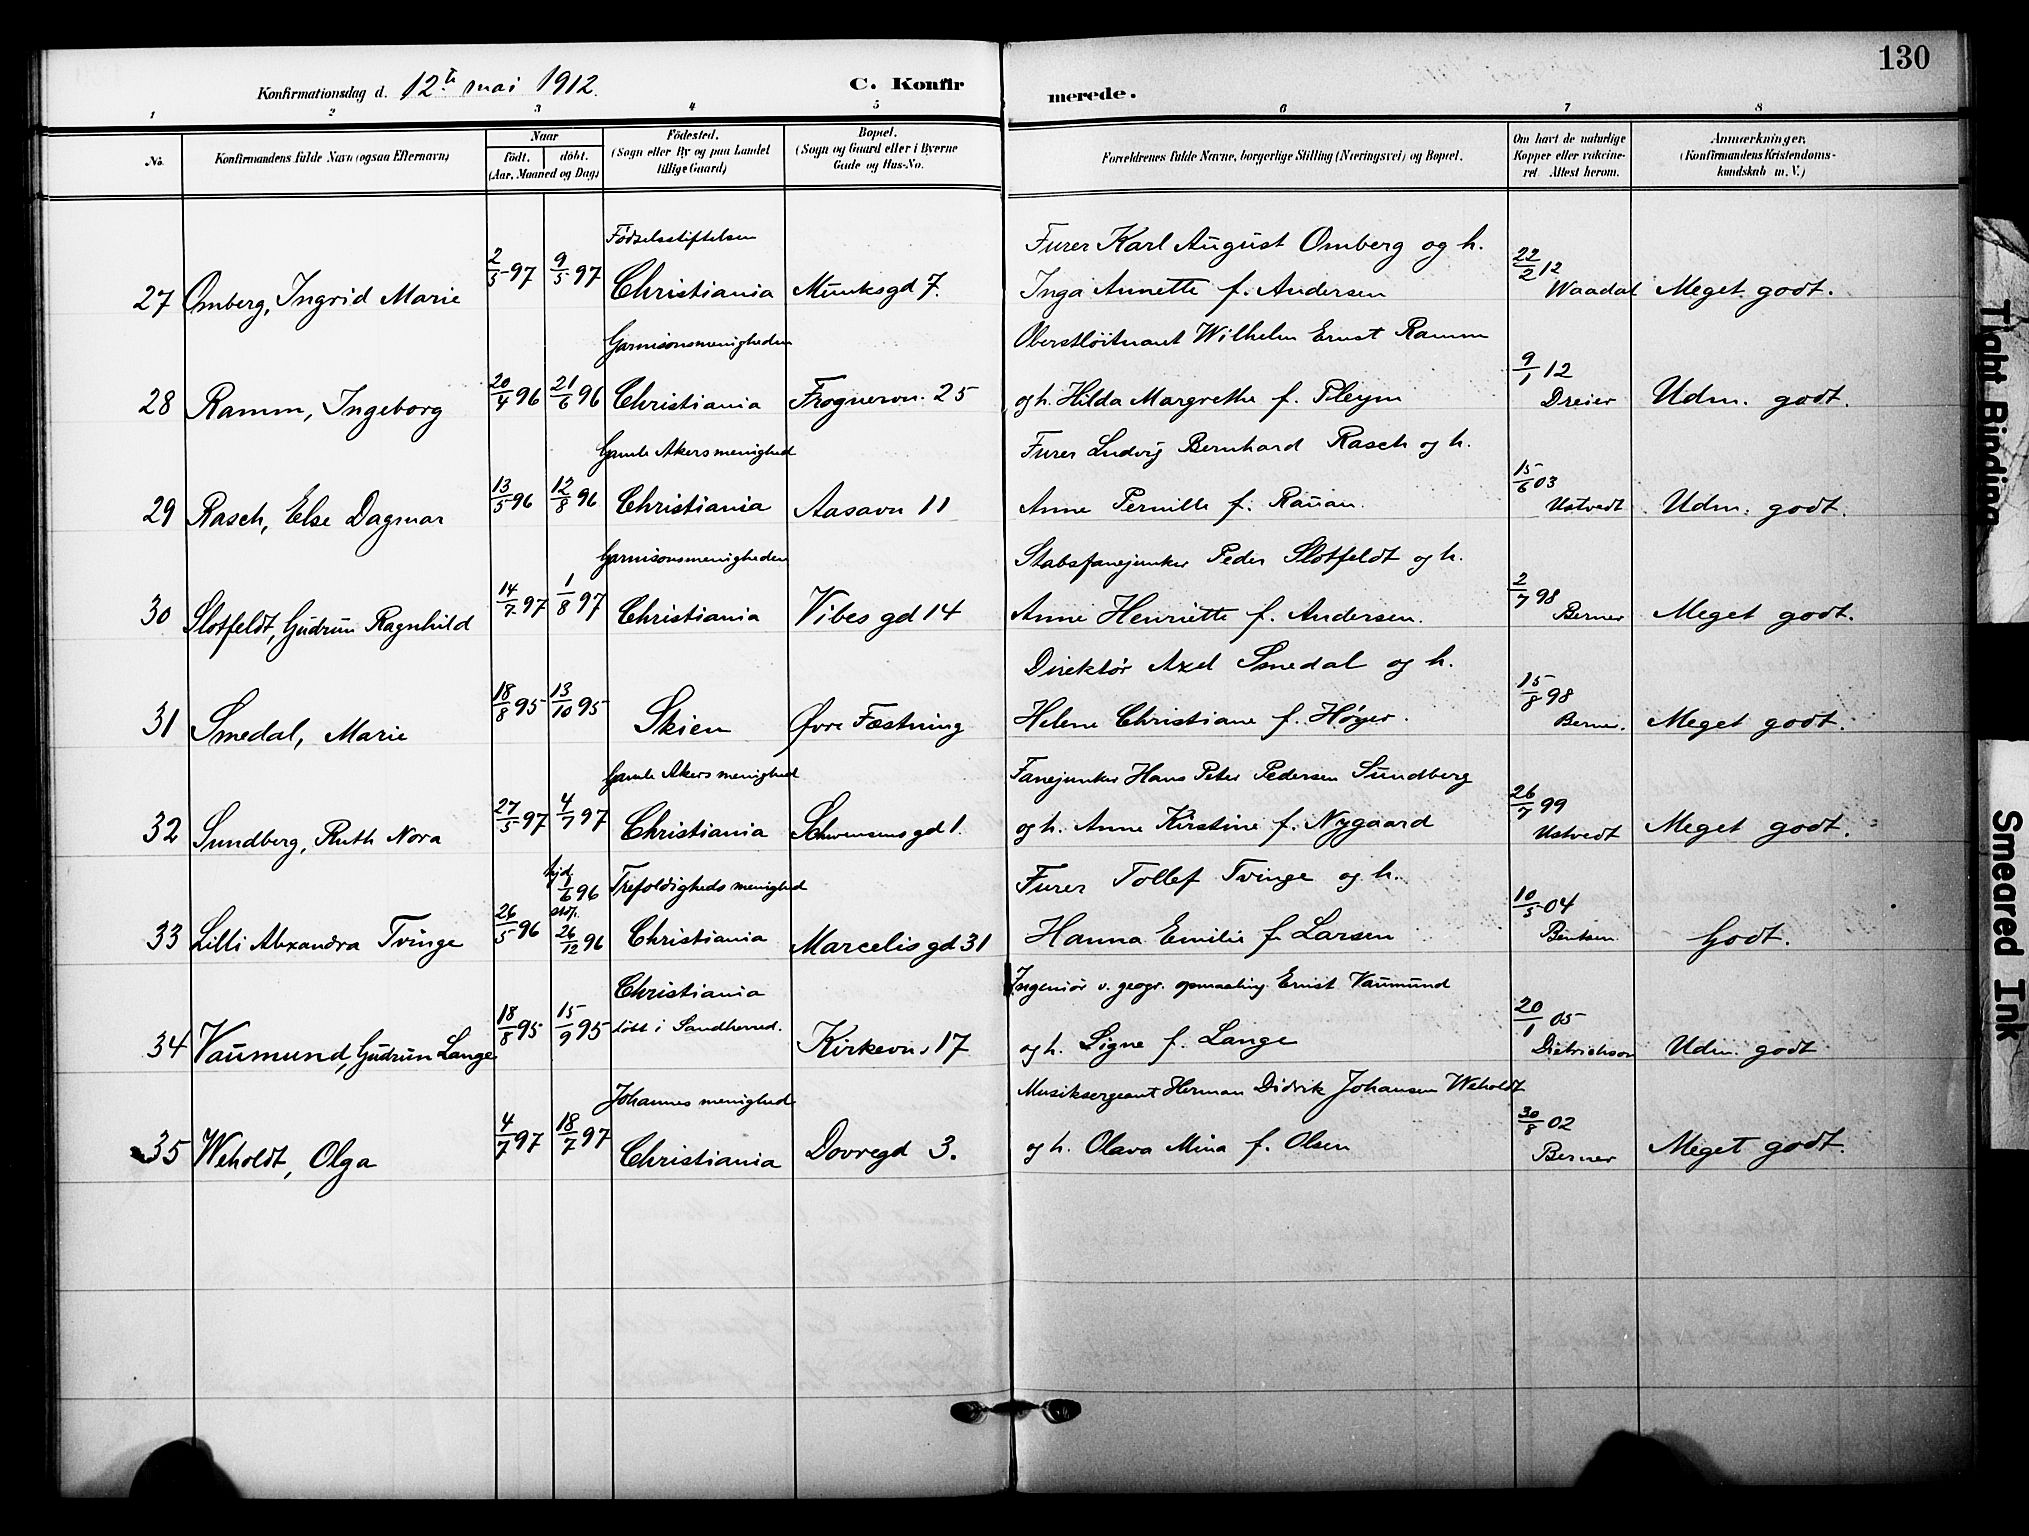 130
Konfirmationsdag d. 12te mai 1912.
C. Konfirmerede.
1 2 3 4 5 6 7 8
No. Konfirmandens fulde Navn (ogsaa Efternavn)
Naar
födt. döbt.
(Aar, Maaned og Dag)
Födested.
(Sogn eller By og paa Landet
tillige Gaard)
Bopæl.
(Sogn og Gaard eller i Byerne
Gade og Hus-No.
Forældrenes fulde Navne, borgerlige Stilling (Næringsvei) og Bopæl.
Om havt de naturlige
Kopper eller vakcine-
ret Attest herom.
Anmærkninger,
(Konfirmandens Kristendoms-
kundskab m. V.)
Fødselsstiftelsen Furer Karl August Omberg og h.
27 Omberg, Ingrid Marie 2/5 97 9/5 97 Christiania Munksgd 7. Inga Annette f. Andersen 22/2 12 Waadal Meget godt.
Garnisonsmenigheden Oberstløitnant Wilhelm Ernst Ramm
28 Ramm, Ingeborg 20/4 96 21/6 96 Christiania Frognervn. 25 og h. Hilda Margrethe f. Pleym 9/1 12 Dreier Udm. godt.
Gamle Akers menighed Furer Ludvig Bernhard Rasch og h.
29 Rasch, Else Dagmar 13/5 96 12/8 96 Christiania Aasavn 11 Anne Pernille f. Rauan. 15/6 03 Ustvedt Udm. godt.
Garnisonsmenigheden Stabsfanejunker Peder Slotfeldt og h.
30 Slotfeldt, Gudrun Ragnhild 14/7 97 1/8 97 Christiania Vibes gd 14 Anne Henriette f. Andersen. 2/7 98 Berner Meget godt.
Direktør Axel Smedal og h.
31 Smedal, Marie 18/8 95 13/10 95 Skien Øvre Fæstning Helene Christiane f. Høyer. 15/8 98 Berner. Meget godt.
Gamle Akers menighed Fanejunker Hans Peter Pedersen Sundberg
32 Sundberg, Ruth Nora 27/5 97 4/7 97 Christiania Schwensens gd 1. og h. Anne Kirstine f. Nygaard 26/7 99 Ustvedt Meget godt.
hjd. 1/6 96 Trefoldigheds menighed Furer Tollef Tvinge og h.
33 Lilli Alexandra Tvinge 26/5 96 stdf. 26/12 96 Christiania Marcelis gd 31 Hanna Emilie f. Larsen 10/5 04 Bentsen Godt.
Christiania Ingeniør v. geogr. opmaaling Ernst Vaumund
34 Vaumund, Gudrun Lange 18/8 95 15/9 95 døbt i Sandherred. Kirkevn. 17 og h. Signe f. Lange 20/1 05 Dietrichson Udm. godt
Johannes menighed Musiksergeant Herman Didrik Johansen Weholdt
35 Weholdt, Olga 4/7 97 18/7 97 Christiania Dovregd 3. og h. Olava Mina f. Olsen 30/8 02 Berner Meget godt.
Tight Binding
Smeared Ink